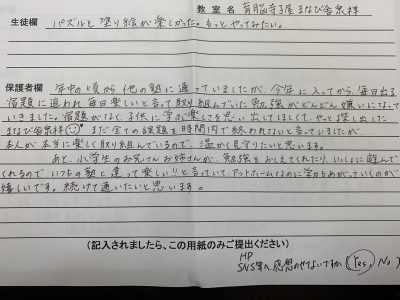 教室名 育脳寺子屋まなび舎京祥
生徒欄 パズルと塗り絵が楽しかった。もっとやってみたい。
保護者欄 年中の頃から他の塾に通っていましたが、今年に入ってから、毎日出る
宿題に追われ毎日楽しいと言って取り組んでいた勉強がどんどん嫌いになって
いきました。宿題がなく、子供に学ぶ楽しさを思い出してほしくて、やっと探し出した
まなび舎京祥 まだ全ての課題を時間内で終われないと言っていましたが、
本人が本当に楽しく取り組んでいるので、温かく見守りたいと思います。
あと、小学生のお兄さんお姉さんが、勉強をおしえてくれたり、いっしょに遊んで
くれるので、いつもの塾と違って楽しい!!と言っていて、アットホームなのに学力もあがっていくのが
嬉しいです。続けて通いたいと思います。
(記入されましたら、この用紙のみご提出ください)
HP
SNS等へ感想のせてよいですか (Yes, No)